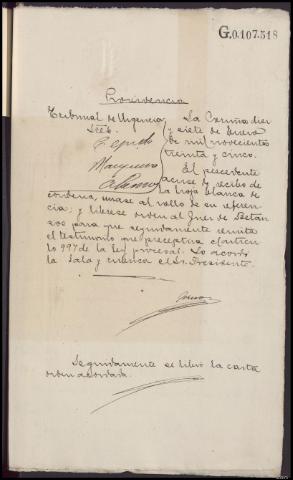 G.0.107.518
Providencia
Tribunal de Urgencia
La Coruña diez
y siete de Enero
de mil novecientos
treinta y cinco.
El precedente
acuse de recibo de
la hoja blanca de
condena, unase al rollo de su referen
cia, y líbrese orden al Juez de Betan
zos para que seguidamente remita
el testimonio que preceptua el articu
lo 997 de la ley procesal. Lo acordó
la Sala y rubrica el Sr. Presidente.
Seguidamente se libró la carta
orden acordada.